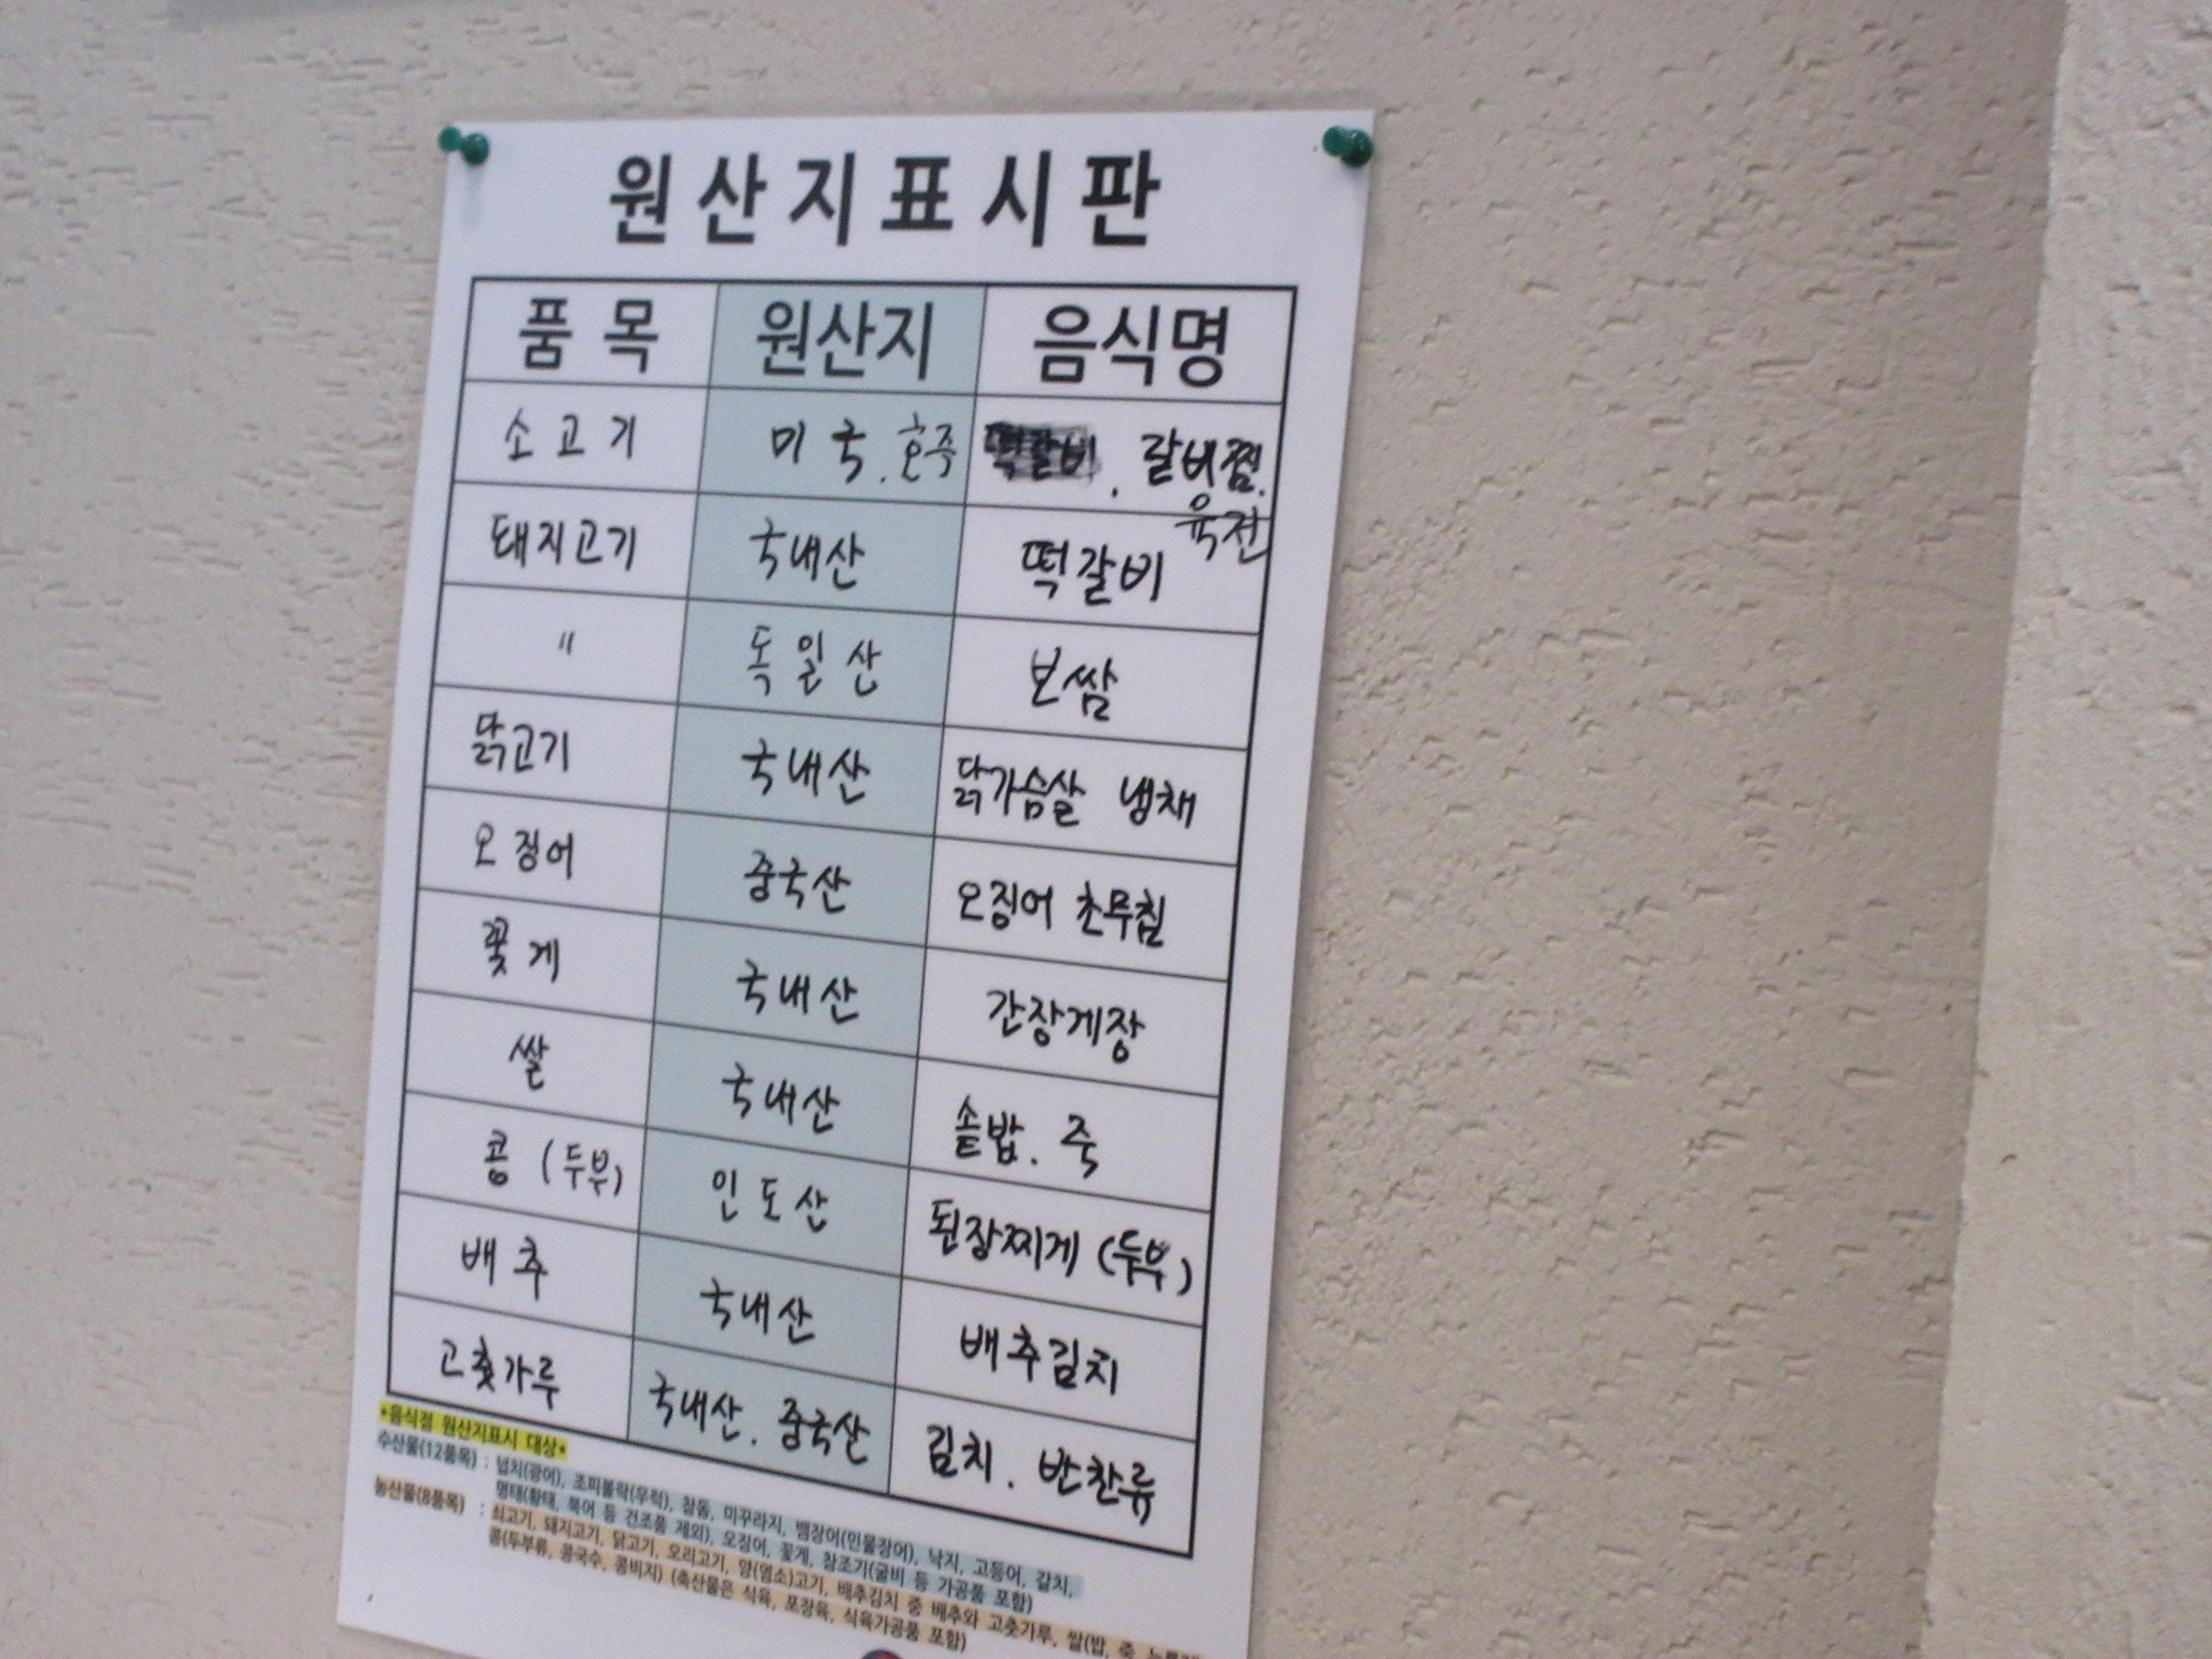 원산지표시판
품 목 원산지 음식명
소고기 미국. 호주 떡갈비. 갈비찜.
육전
돼지고기 국내산 떡갈비
〃 독일산 보쌈
닭고기 국내산 닭가슴살 냉채
오징어 중국산 오징어 초무침
꽃게 국내산 간장게장
쌀 국내산 솥밥. 죽
콩 (두부) 인도산 된장찌게 (두부)
배추 국내산 배추김치
고춧가루 국내산. 중국산 김치. 반찬류
*음식점 원산지표시 대상*
수산물(12품목) : 넙치(광어), 조피볼락(우럭), 참돔, 미꾸라지, 뱀장어(민물장어), 낙지, 고등어, 갈치,
명태(황태, 북어 등 건조품 제외), 오징어, 꽃게, 참조기(굴비 등 가공품 포함)
농산물(8품목) : 쇠고기, 돼지고기, 닭고기, 오리고기, 양(염소)고기, 배추김치 중 배추와 고춧가루, 쌀(밥, 죽,
콩(두부류, 콩국수, 콩비지) (축산물은 식육, 포장육, 식육가공품 포함)